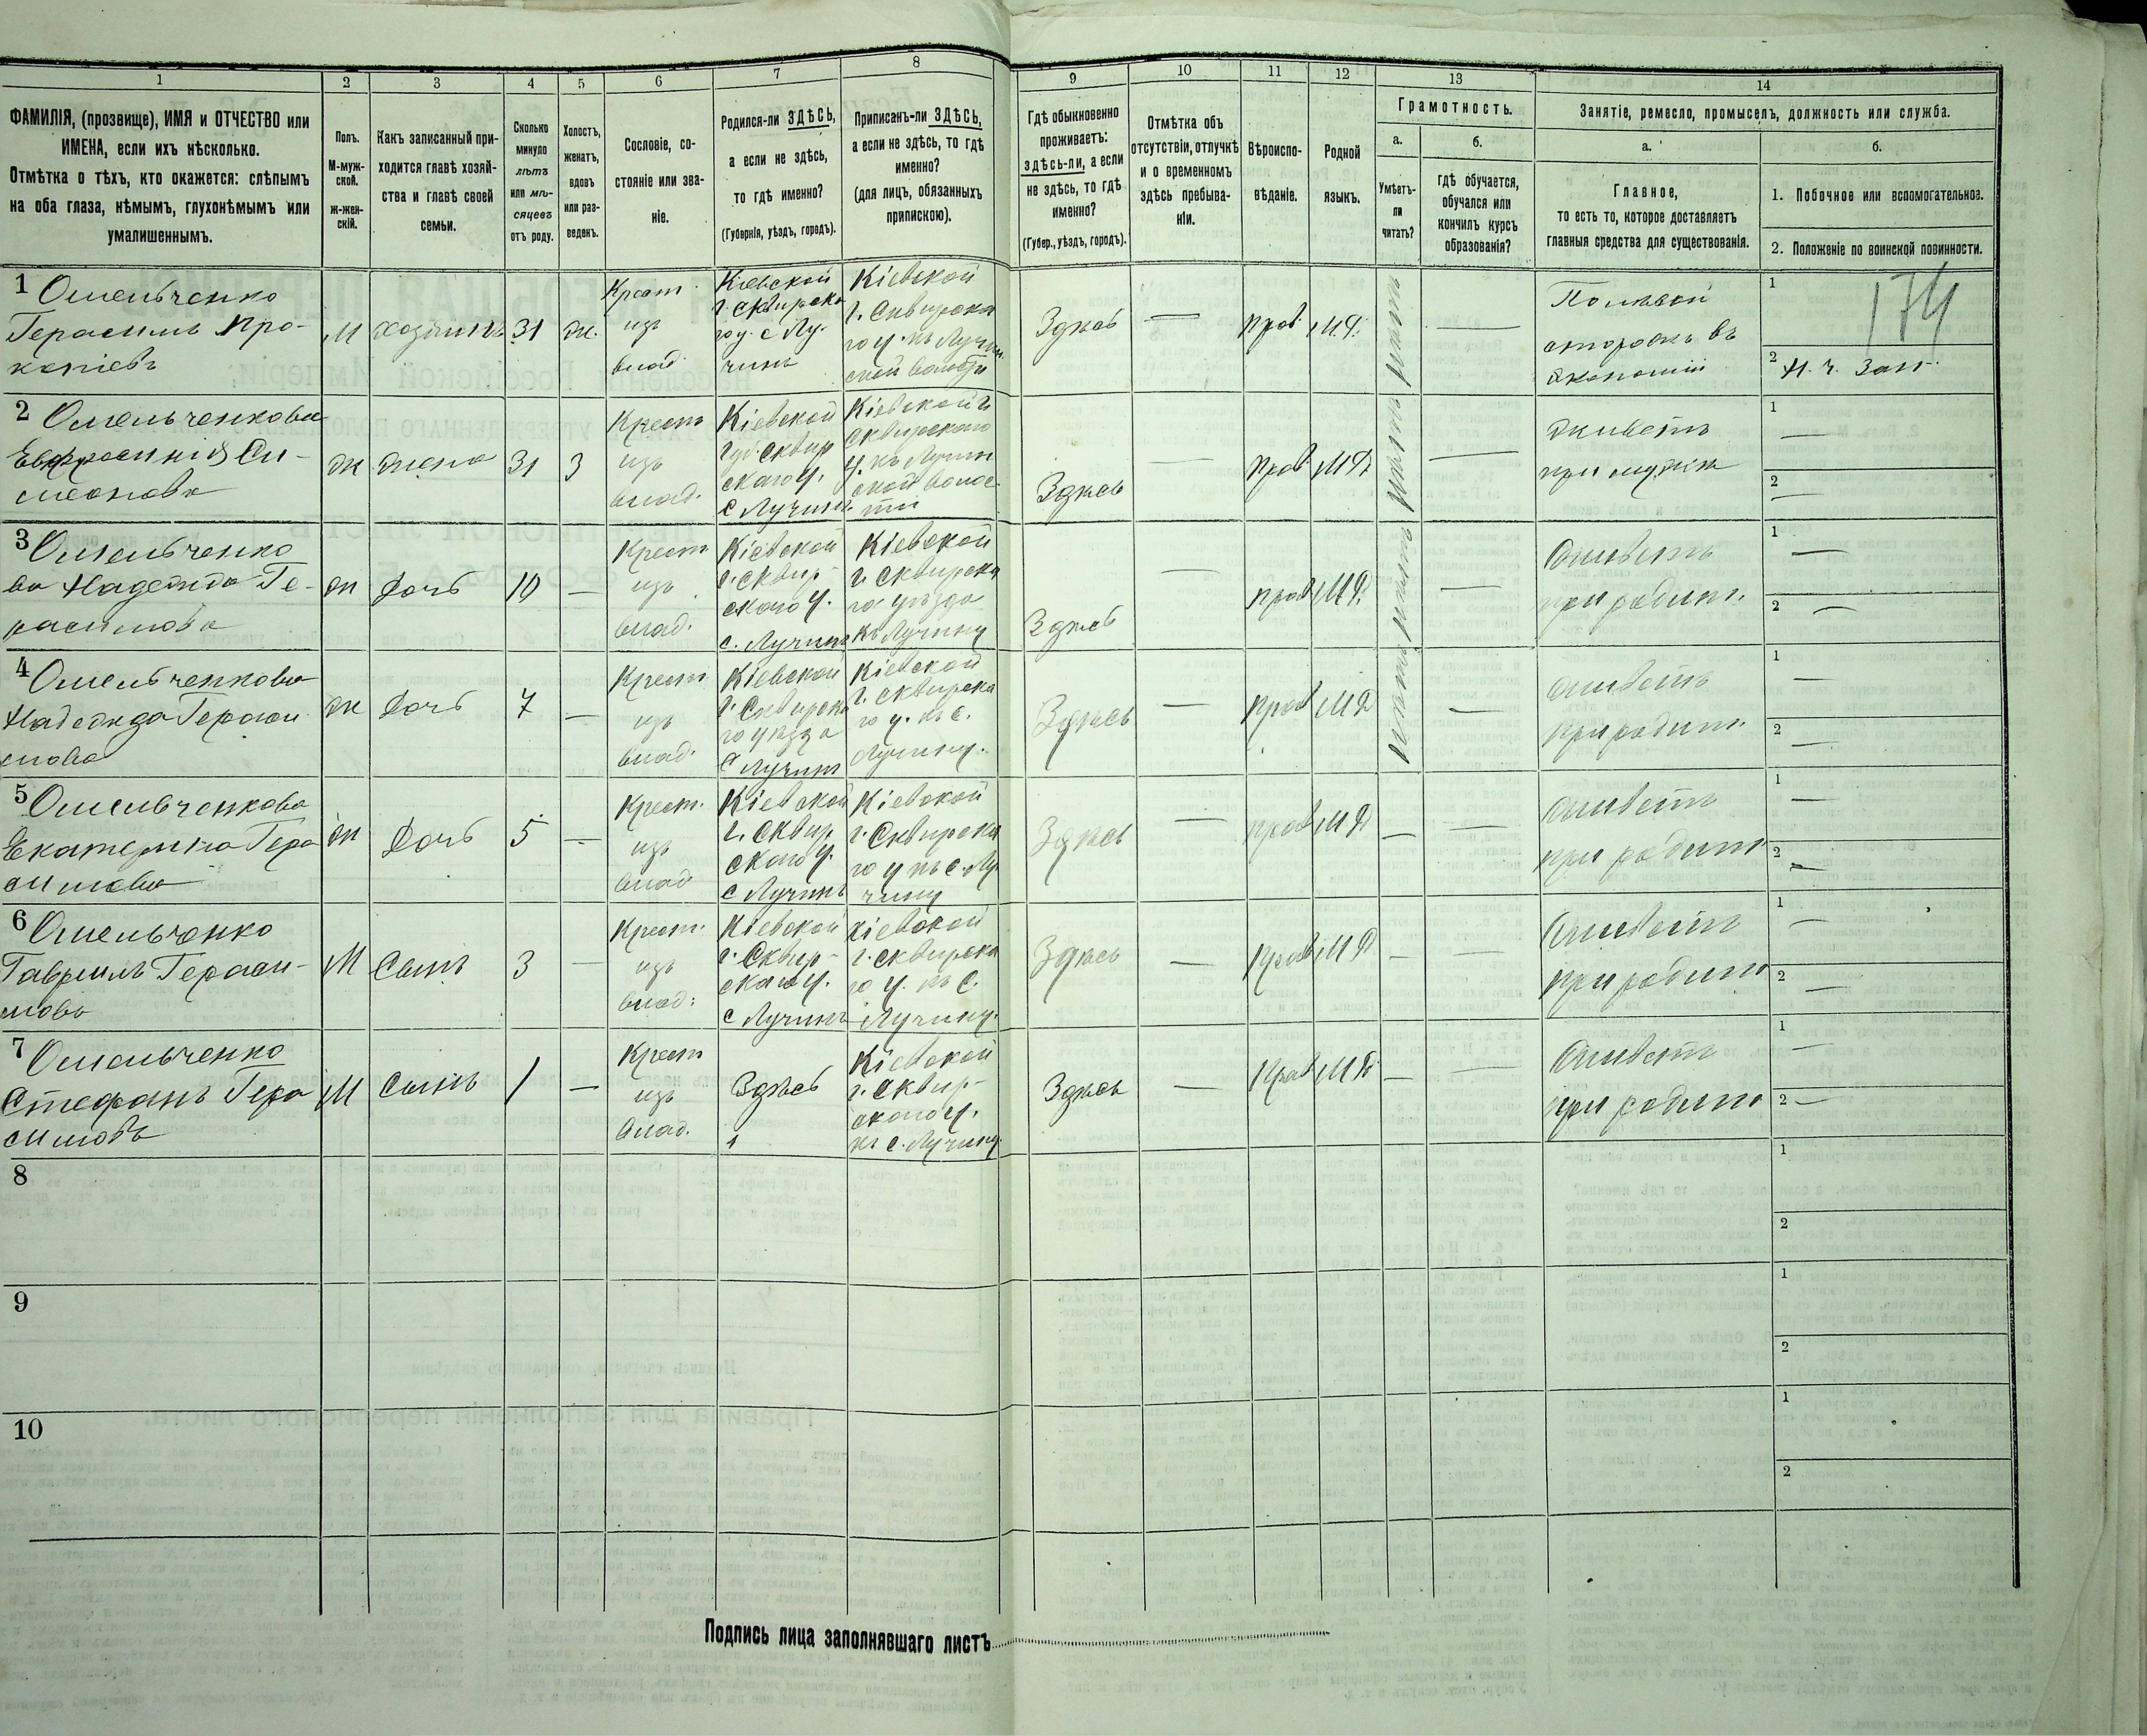 1
2
3
4
5
6
7
8
ФАМИЛІЯ, (прозвище), ИМЯ и ОТЧЕСТВО или
ИМЕНА, если ихъ нѣсколько.
Отмѣтка о тѣхъ, кто окажется: слѣпымъ
на оба глаза, нѣмымъ, глухонѣмымъ или
умалишеннымъ.
Полъ.
М-муж-
ской.
ж-жен-
скій.
Какъ записанный при-
ходится главѣ хозяй-
ства и главѣ своей
семьи.
Сколько
минуло
лѣтъ
или мѣ-
сяцевъ
отъ роду.
Холостъ,
женатъ,
вдовъ
или раз-
веденъ.
Сословіе, со-
стояніе или зва-
ніе.
Родился-ли ЗДѢСЬ,
а если не здѣсь,
то гдѣ именно?
(Губернія, уѣздъ, городъ).
Приписанъ-ли ЗДѢСЬ,
а если не здѣсь, то гдѣ
именно?
(для лицъ, обязанныхъ
припискою).
9
10
11
12
13
14
Гдѣ обыкновенно
проживаетъ:
здѣсь-ли, а если
не здѣсь, то гдѣ
именно?
(Губер., уѣздъ, городъ).
Отмѣтка объ
отсутствіи, отлучкѣ
и о временномъ
здѣсь пребыва-
ніи.
Вѣроиспо-
вѣданіе.
Родной
языкъ.
Грамотность.
а.
Умѣетъ-
ли
читать?
б.
гдѣ обучается,
обучался или
кончилъ курсъ
образованія?
Занятіе, ремесло, промыселъ, должность или служба.
а.
Главное,
то есть то, которое доставляетъ
главныя средства для существованія.
б.
1. Побочное или вспомогательное.
2. Положеніе по воинской повинности.
1 Омельченко
Герасимъ Про-
копіевъ
М
хозяинъ
31
ж.
Крест.
изъ
влад.
Кіевской
г. Сквирска
го у. с Лу-
чинъ
Кіевской
г. Сквирска
го у. къ Лучин
ской волости
Здѣсь
—
прав
М.Р.
—
Полевой
сторожъ въ
экономіи
1
174
2 н. ч. зап.
2 Омельченкова
Евфросинія Си-
меонова
ж
жена
31
з
Крест
изъ
влад.
Кіевской
губ. Сквир
скаго у.
с Лучинъ
Кіевской г
Сквирскаго
у. къ Лучин
ской волос
ти
Здѣсь
—
прав
МР
—
живетъ
при мужѣ
1 —
2 —
3 Омельченко
ва Надежда Ге-
расимова
ж
дочь
10
—
Крест
изъ
влад.
Кіевской
г. Сквир-
скаго у.
с. Лучинъ
Кіевской
г. Сквирска
го уѣзда
къ Лучину
Здѣсь
—
прав
МР
—
живетъ
при родит.
1 —
2 —
4 Омельченкова
Надежда Гераси
мова
ж
дочь
7
—
Крест
изъ
влад.
Кіевской
г. Сквирска
го уѣзда
с Лучинъ
Кіевской
г. Сквирска
го у. къ с.
Лучину.
Здѣсь
—
прав
МР
—
живетъ
при родит.
1 —
2 —
5 Омельченкова
Екатерина Гера
симова
ж
дочь
5
—
Крест.
изъ
влад
Кіевской
г. Сквир
скаго у.
с Лучинъ
Кіевской
г. Сквирска
го у къ с. Лу-
чину
Здѣсь
—
прав
МР
—
—
живетъ
при родит
1 —
2 —
6 Омельченко
Гавріилъ Гераси-
мовъ
М
Сынъ
3
—
Крест.
изъ
влад.
Кіевской
г. Сквир-
скаго у.
с Лучинъ
Кіевской
г. Сквирска
го у. къ с.
Лучину.
Здѣсь
—
прав
МР
—
—
живетъ
при родит
1 —
2 —
7 Омельченко
Стефанъ Гера
симовъ
М
Сынъ
1
—
Крест
изъ
влад.
Здѣсь
1
Кіевской
г. Сквир-
скаго у.
къ с. Лучину.
Здѣсь
—
прав
МР
—
—
живетъ
при родит
1 —
2 —
8
1
2
9
1
2
10
1
2
Подпись лица заполнявшаго листъ